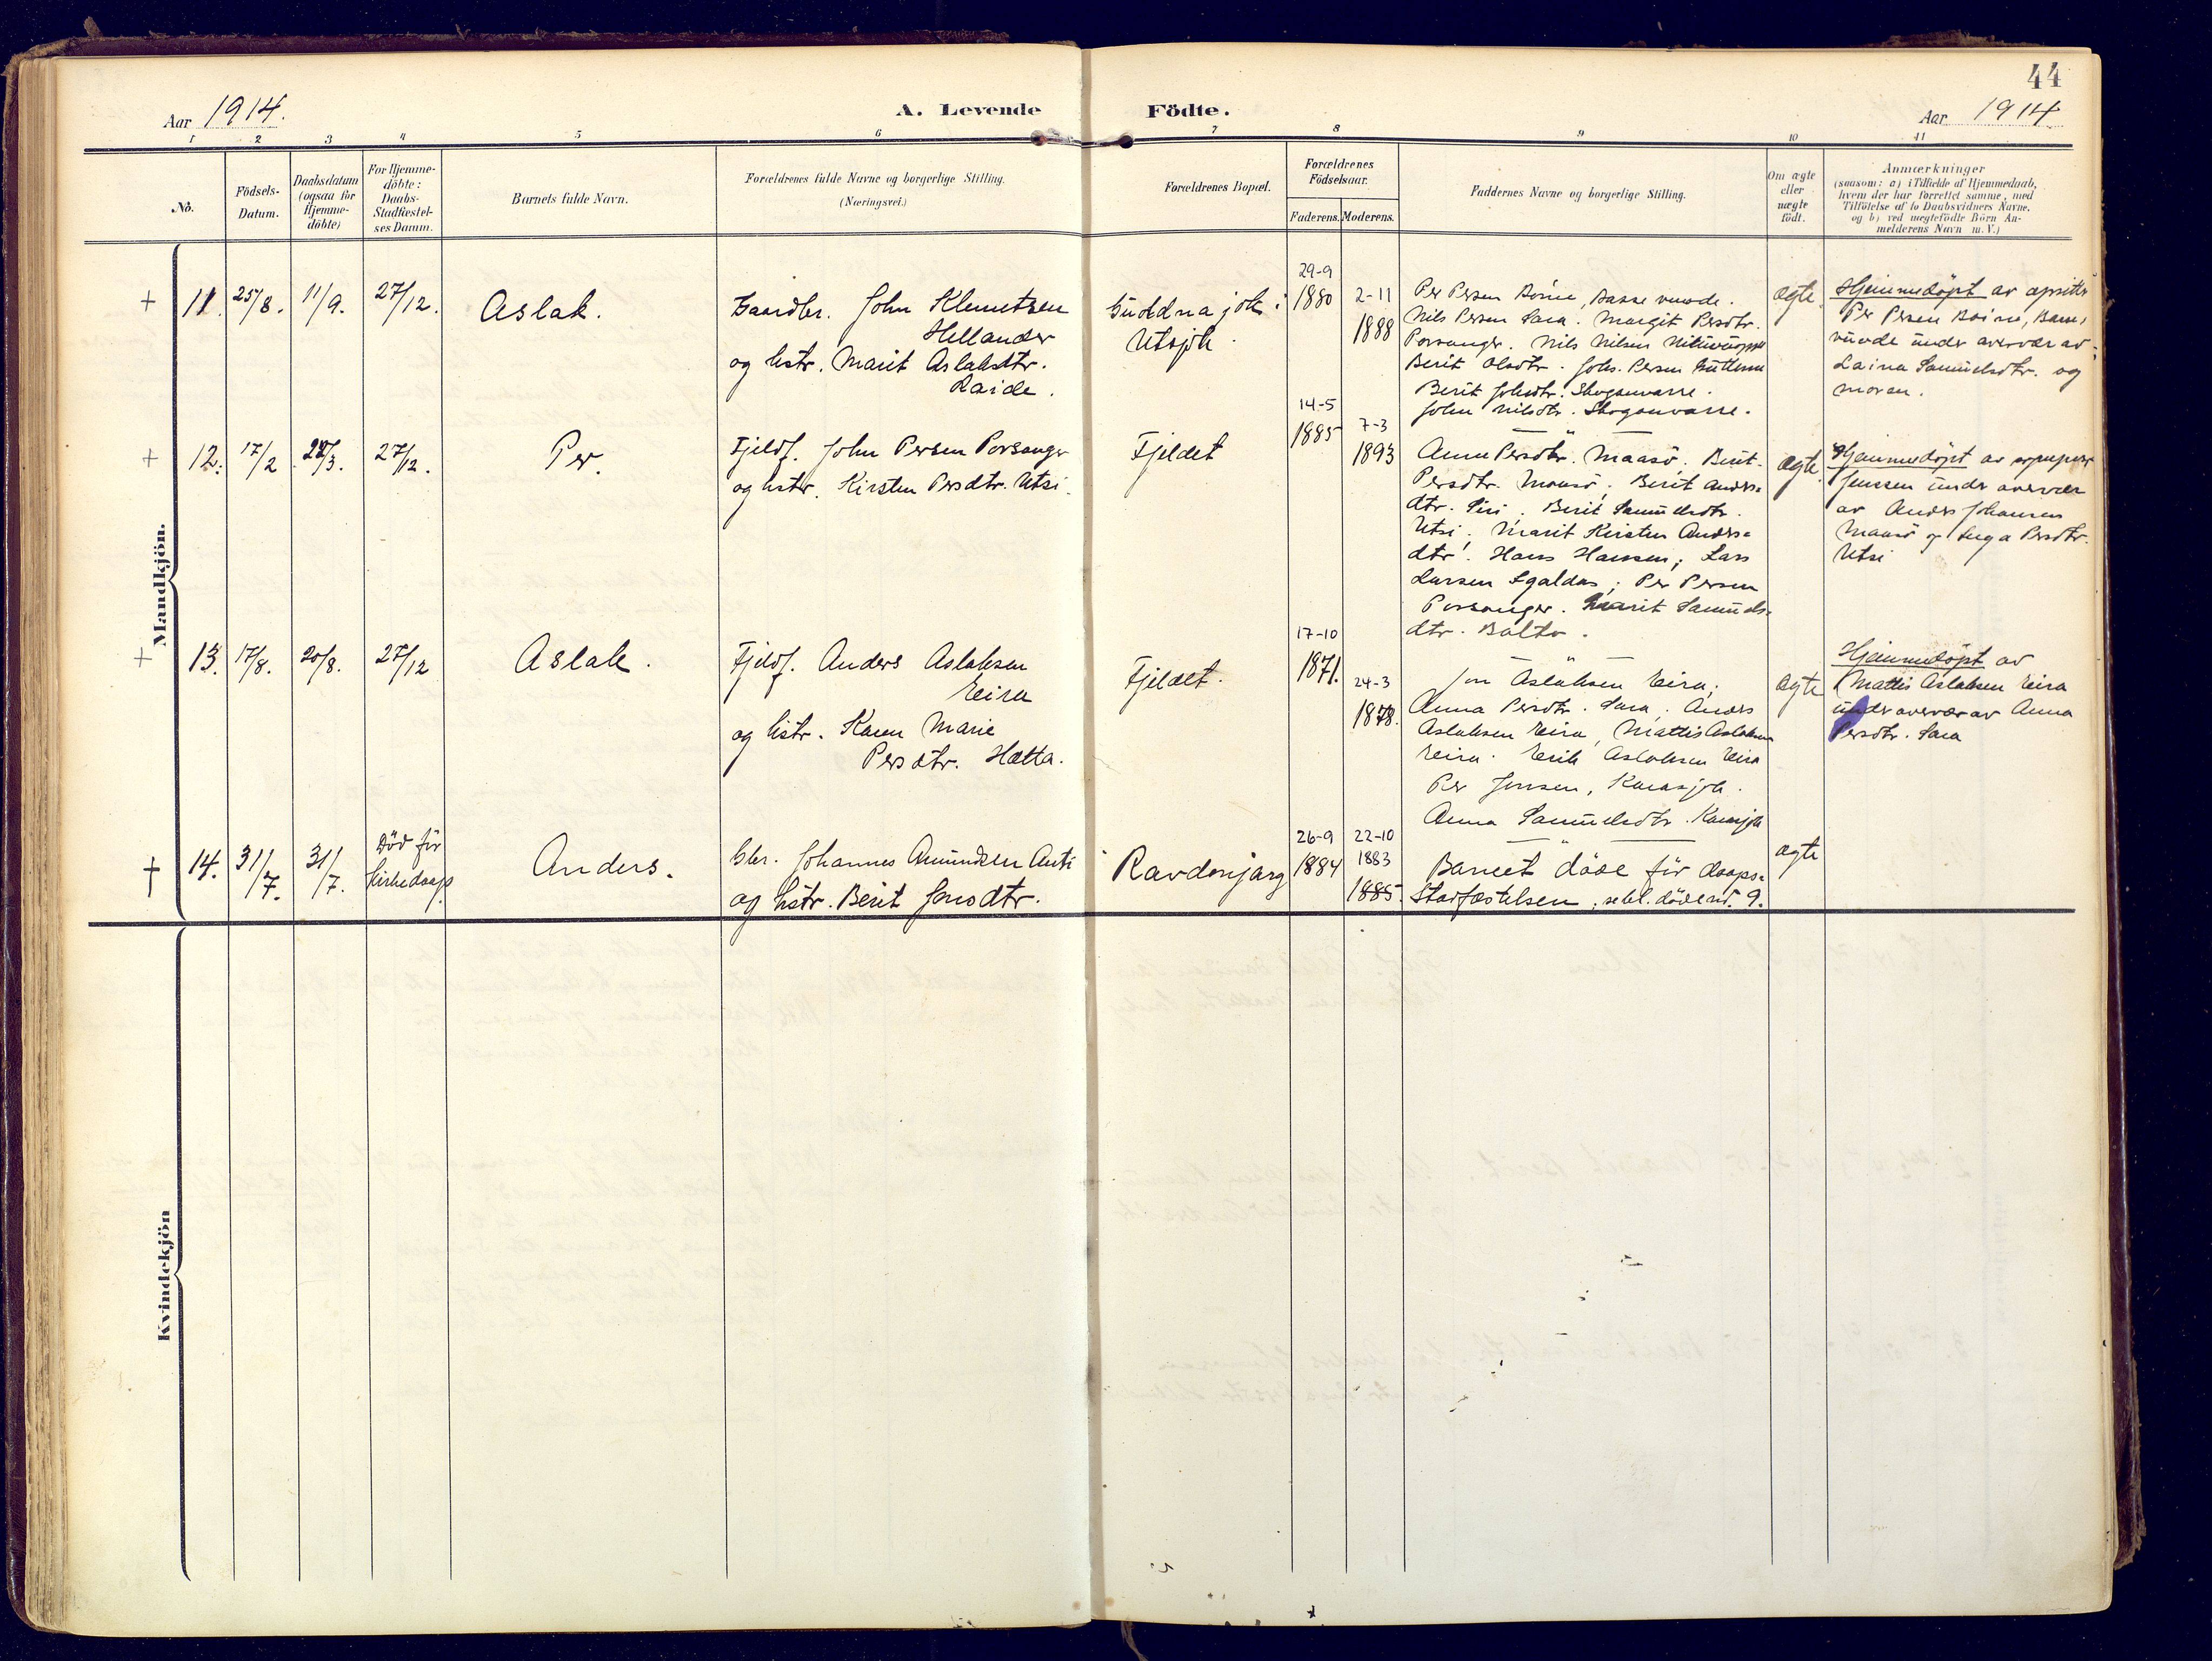 44
Aar 1914.
A. Levende Födte.
Aar 1914
1 2 3 4 5 6 7 8 9 10 11
No.
Födsels-
Datum.
Daabsdatum
(ogsaa for
Hjemme-
döbte)
For Hjemme-
döbte:
Daabs-
Stadfæstel-
ses Datum.
Barnets fulde Navn.
Forældrenes fulde Navne og borgerlige Stilling.
(Næringsvei.)
Forældrenes Bopæl.
Forældrenes
Födselsaar.
Faderens. Moderens.
Faddernes Navne og borgerlige Stilling.
Om ægte
eller
uægte
födt.
Anmærkninger
(saasom: a) i Tilfælde af Hjemmedaab,
hvem der har forrettet samme, med
Tilföielse af to Daabsvidners Navne,
og b) ved uægtefödte Börn An-
melderens Navn m. V.)
Mandkjön.
+ 11. 25/8. 11/9. 27/12. Aslak.
Gaardbr. John Klemetsen
Hellander
og hstr. Marit Aslaksdtr.
Laide.
Guoldnajok i
Utsjok.
29-9
1880
2-11
1888
Per Persen Boine, Basse vuovde.
Nils Persen Sara. Margit Persdtr.
Porsanger. Nils Nilsen
Berit Olsdtr. Johs. Persen Guttorm
Berit Johsdtr. Skoganvarre.
John Nilsdtr. Skoganvarre.
ægte.
Hjemmedöpt av opsitter
Per Persen Boine, Basse,
vuovde under overvær av
Laina Samuelsdtr. og
moren.
+ 12. 17/2 /3. 27/12. Per.
Fjeldf. John Persen Porsanger
og hstr. Kirsten Persdtr. Utsi.
Fjeldet
14-5
1885
7-3
1893
Anne Persdtr. Maasö. Berit
Persdtr. Maasö. Berit Anders-
dtr. Siri. Berit Samuelsdtr.
Utsi. Marit Kirsten Anders-
dtr. Hans Hansen; Lars
Larsen Sgaldas; Per Persen
Porsanger. Marit Samuels-
dtr. Balto.
ægte.
Hjemmedöpt av sogneprest
Jenssen under overvær
av Anders Johansen
Maasö og Inga Persdtr.
Utsi
+ 13. 17/8. 20/8. 27/12 Aslak.
Fjeldf. Anders Aslaksen
Eira
og hstr. Karen Marie
Persdtr. Hætta.
Fjeldet.
17-10
1871.
24-3
1878.
Jon Aslaksen Eira;
Anna Persdtr. Sara. Anders
Aslaksen Eira, Mattis Aslaksen
Eira. Erik Aslaksen Eira
Per Jonsen, Karasjok.
Anna Samuelsdtr. Karasjok
ægte
Hjemmedöpt av
Mattis Aslaksen Eira
under overvær av Anna
Persdtr. Sara
+ 14. 31/7. 31/7. Död för
kirkedaap Anders.
Gbr. Johannes Amundsen Anti
og hstr. Berit Jonsdtr.
Ravdonjarg
26-9
1884
22-10
1883
1885.
Barnet döde för daaps-
Stadfæstelsen; se bl. döde nr. 9.
ægte
Kvindekjön